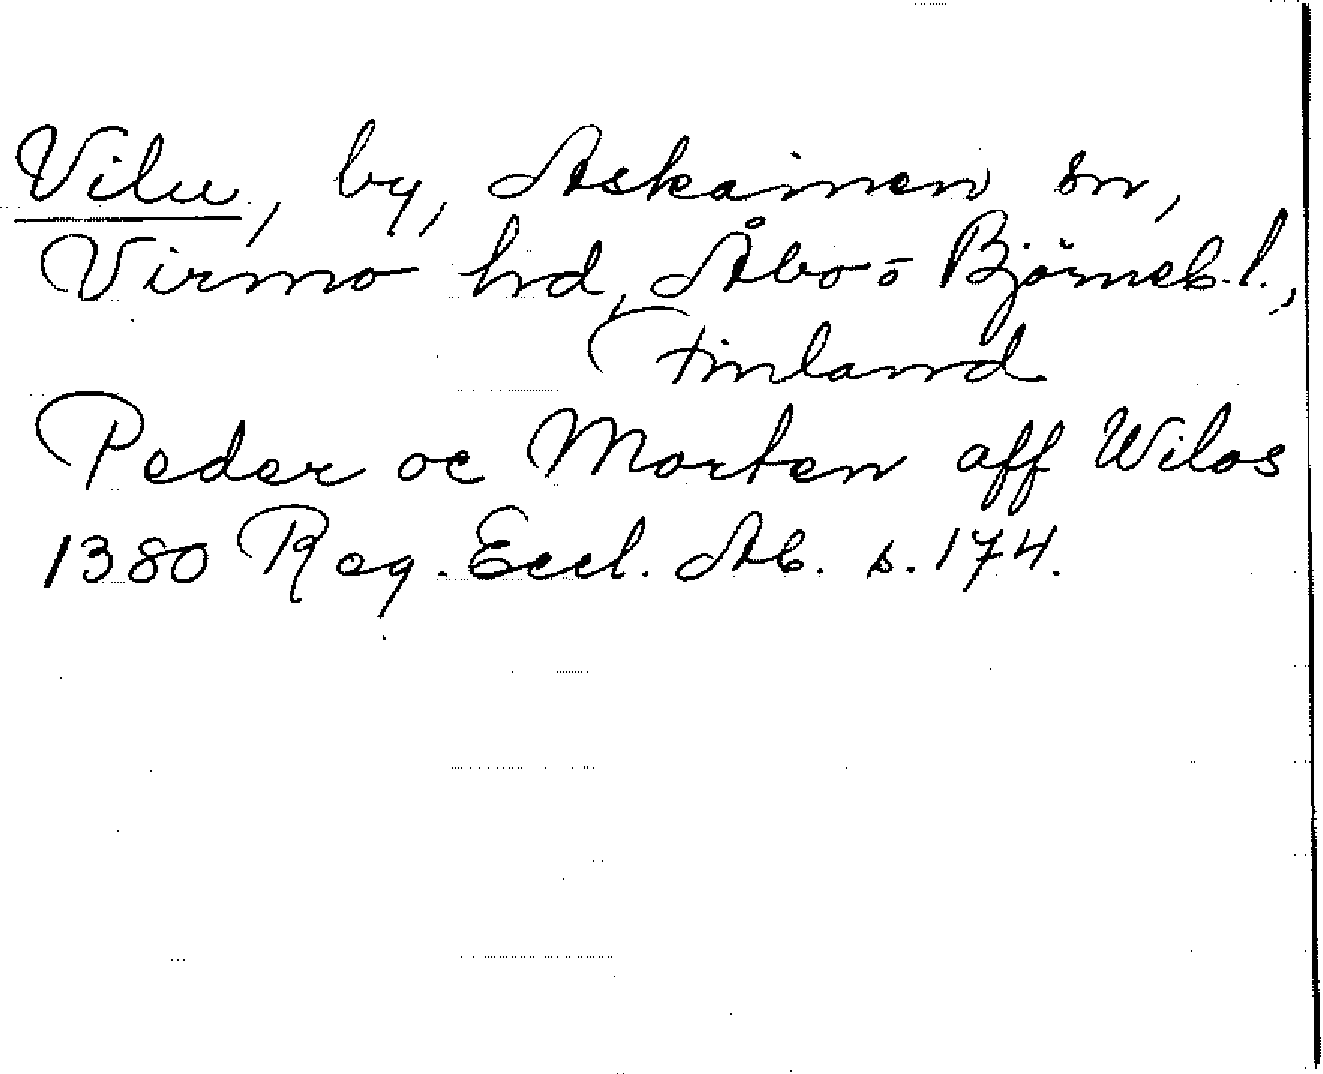 Vilu, by, Askainen sn,
Virmo hd, Åbo o Björneb. l.,
Finland
Peder oc Morten aff Wilos
1380 Reg. Eccl. Ab. s. 174.